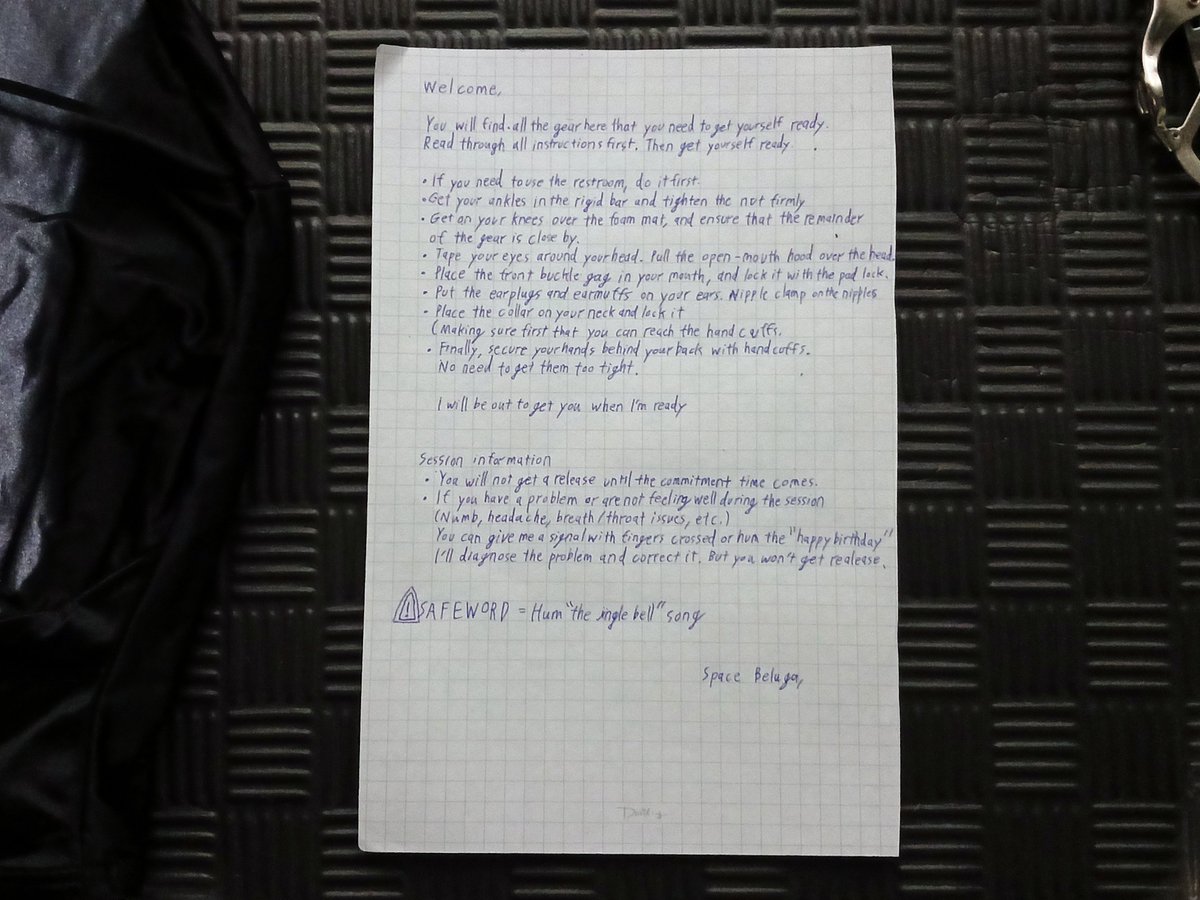 Welcome,
You will find all the gear here that you need to get yourself ready.
Read through all instructions first. Then get yourself ready.
• If you need to use the restroom, do it first.
• Get your ankles in the rigid bar and tighten the nut firmly
• Get on your knees over the foam mat, and ensure that the remainder
of the gear is close by.
• Tape your eyes around your head. Pull the open-mouth hood over the head.
• Place the front buckle gag in your mouth, and lock it with the pad lock.
• Put the earplugs and earmuffs on your ears. Nipple clamp on the nipples
• Place the collar on your neck and lock it
(Making sure first that you can reach the hand cuffs.
• Finally, secure your hands behind your back with handcuffs.
No need to get them too tight.
I will be out to get you when I'm ready
Session information
• You will not get a release until the commitment time comes.
• If you have a problem or are not feeling well during the session
(Numb, headache, breath/throat issues, etc.)
You can give me a signal with fingers crossed or hum the "happy birthday"
I'll diagnose the problem and correct it. But you won't get realease.
SAFEWORD = Hum "the jingle bell" song
Space Beluga,